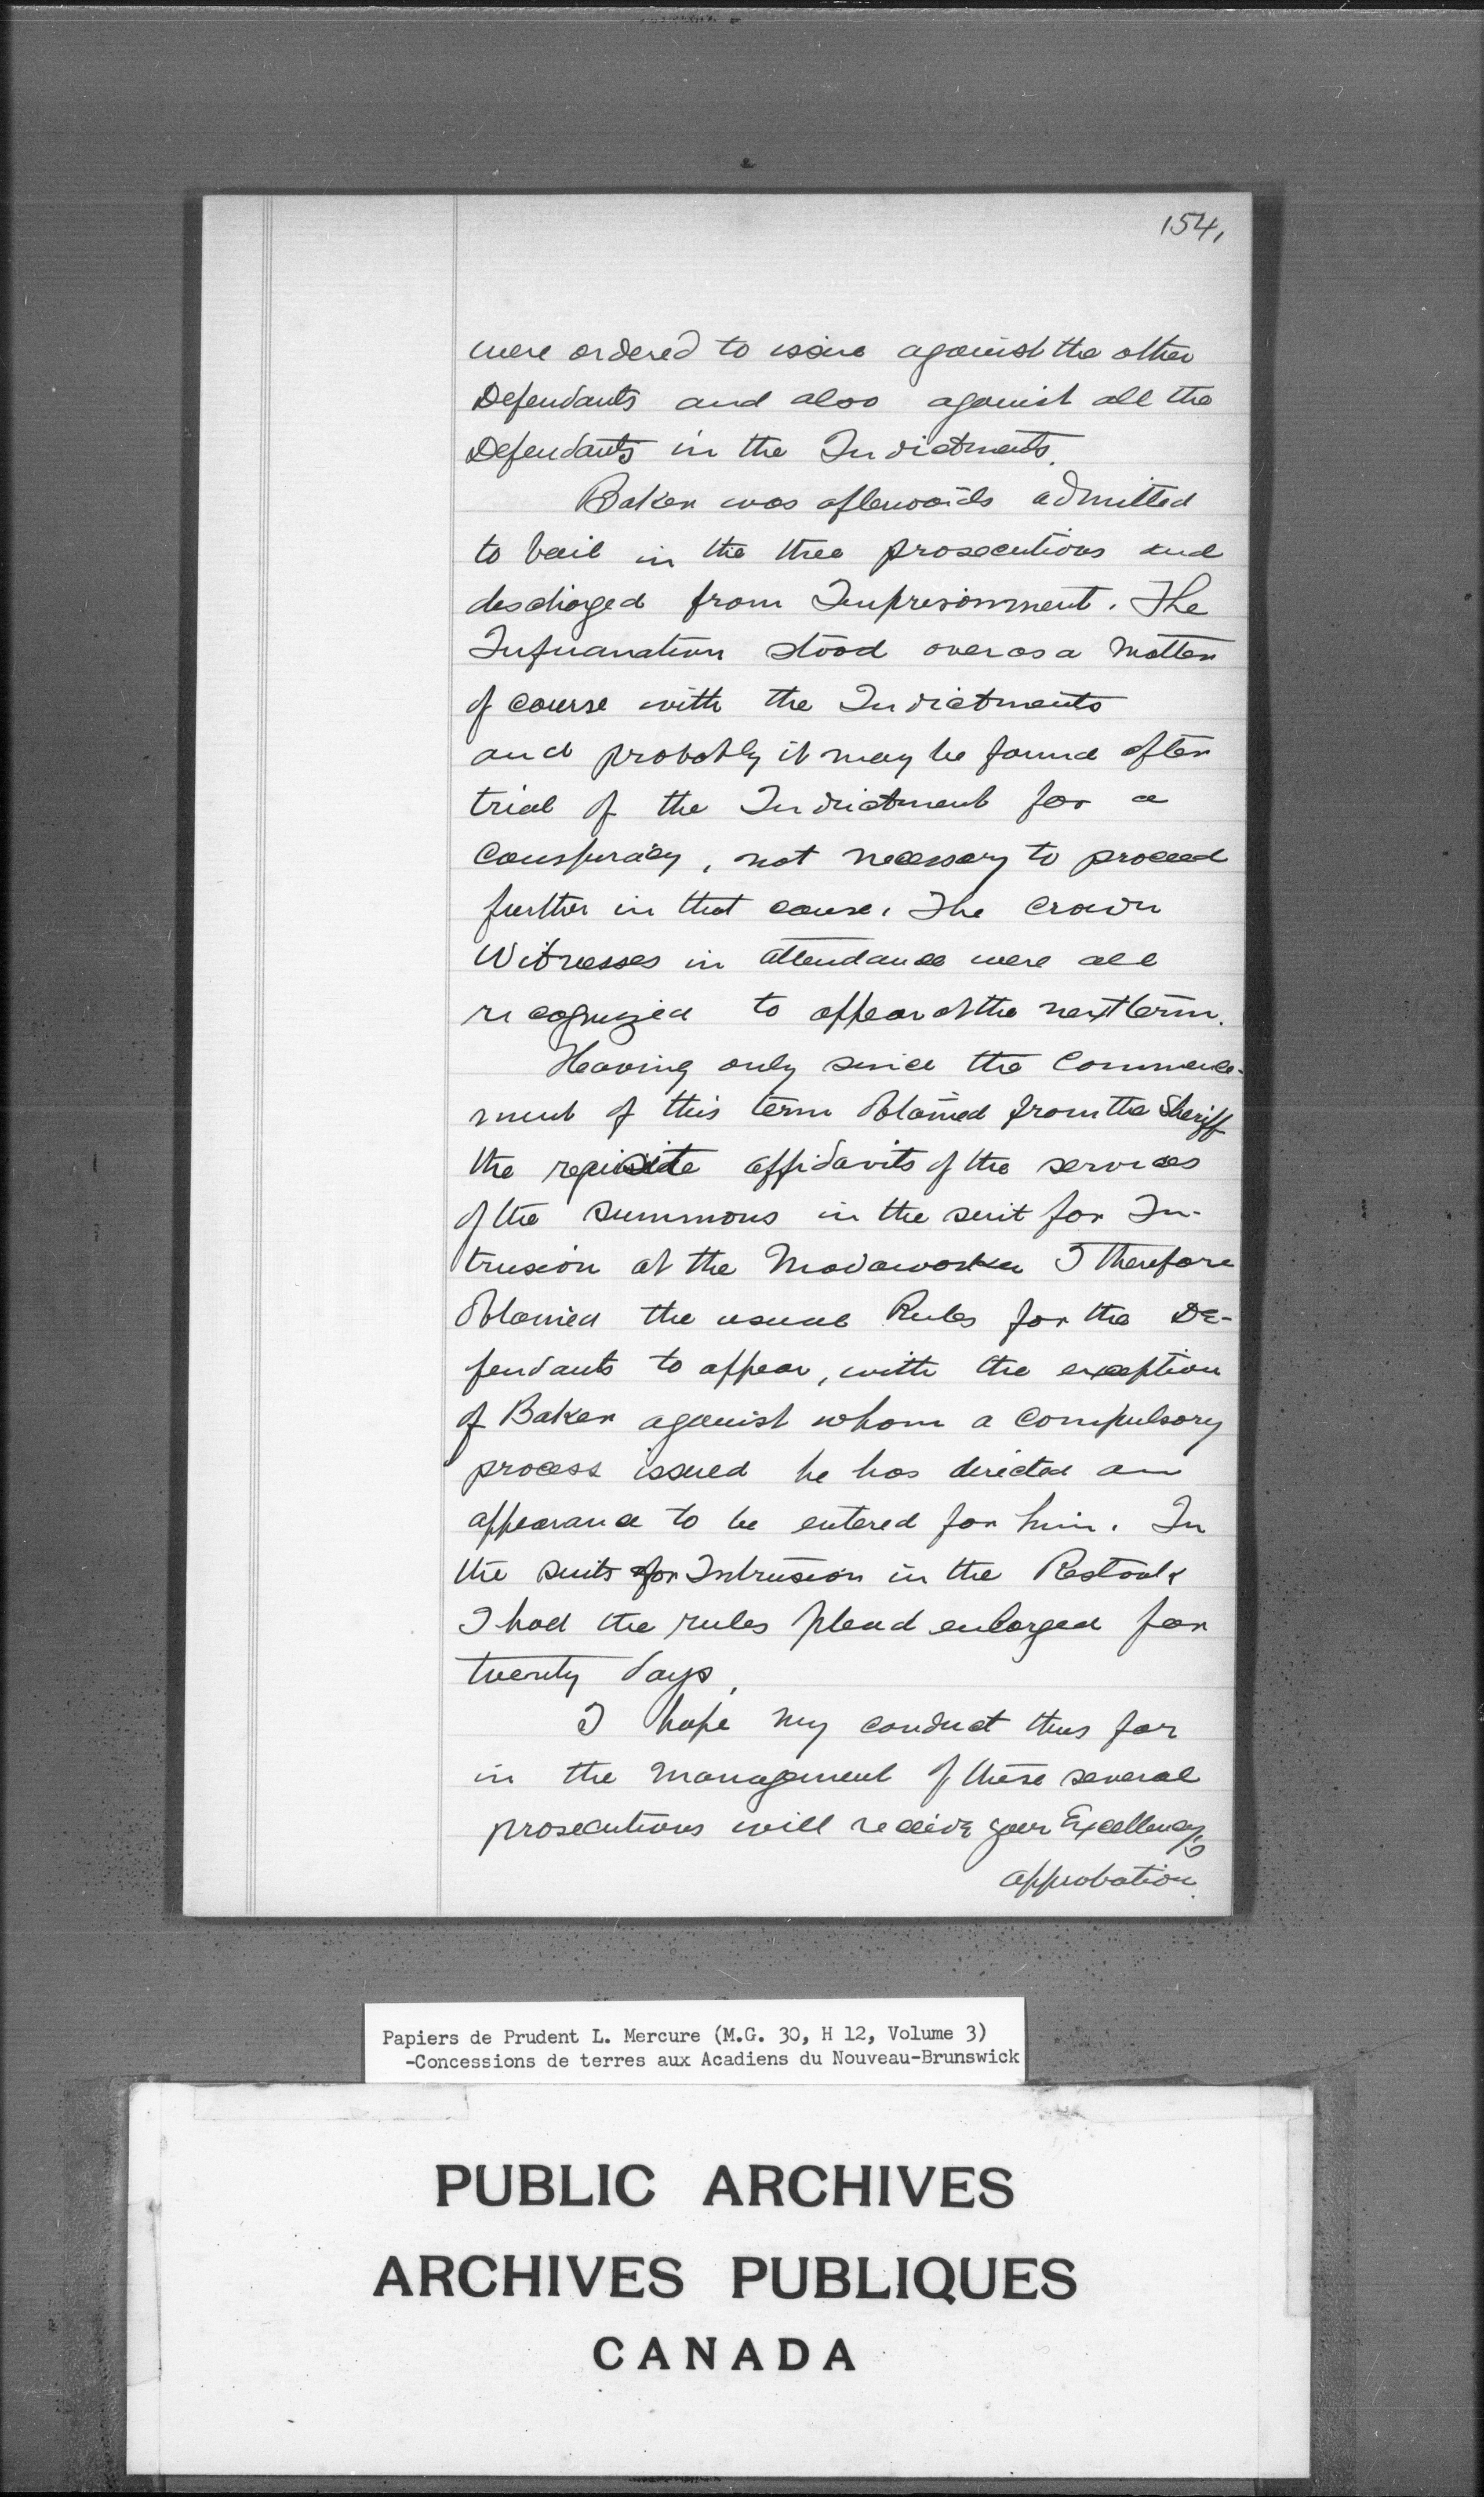 154,
were ordered to issue against the other
Defendants and also against all the
Defendants in the Indictments.
Baker was afterwards admitted
to bail in the three prosecutions and
discharged from Imprisonment. The
Information stood over as a matter
of course with the Indictments
and probably it may be found after
trial of the Indictment for a
Conspiracy, not necessary to proceed
further in that cause. The Crown
Witnesses in attendance were all
recognized to appear at the next term.
Having only since the Commence-
ment of this term obtained from the Sheriff
the requisite affidavits of the services
of the summons in the suit for In-
trusion at the Madawaska I therefore
obtained the usual Rules for the De-
fendants to appear, with the exception
of Baker against whom a Compulsory
process issued he has directed an
appearance to be entered for him. In
the suits for Intrusion in the Restook
I had the rules plead enlarged for
twenty days.
I hope my conduct thus far
in the management of these several
prosecutions will receive your Excellency's
approbation.
Papiers de Prudent L. Mercure (M.G. 30, H 12, Volume 3)
-Concessions de terres aux Acadiens du Nouveau-Brunswick
PUBLIC ARCHIVES
ARCHIVES PUBLIQUES
CANADA